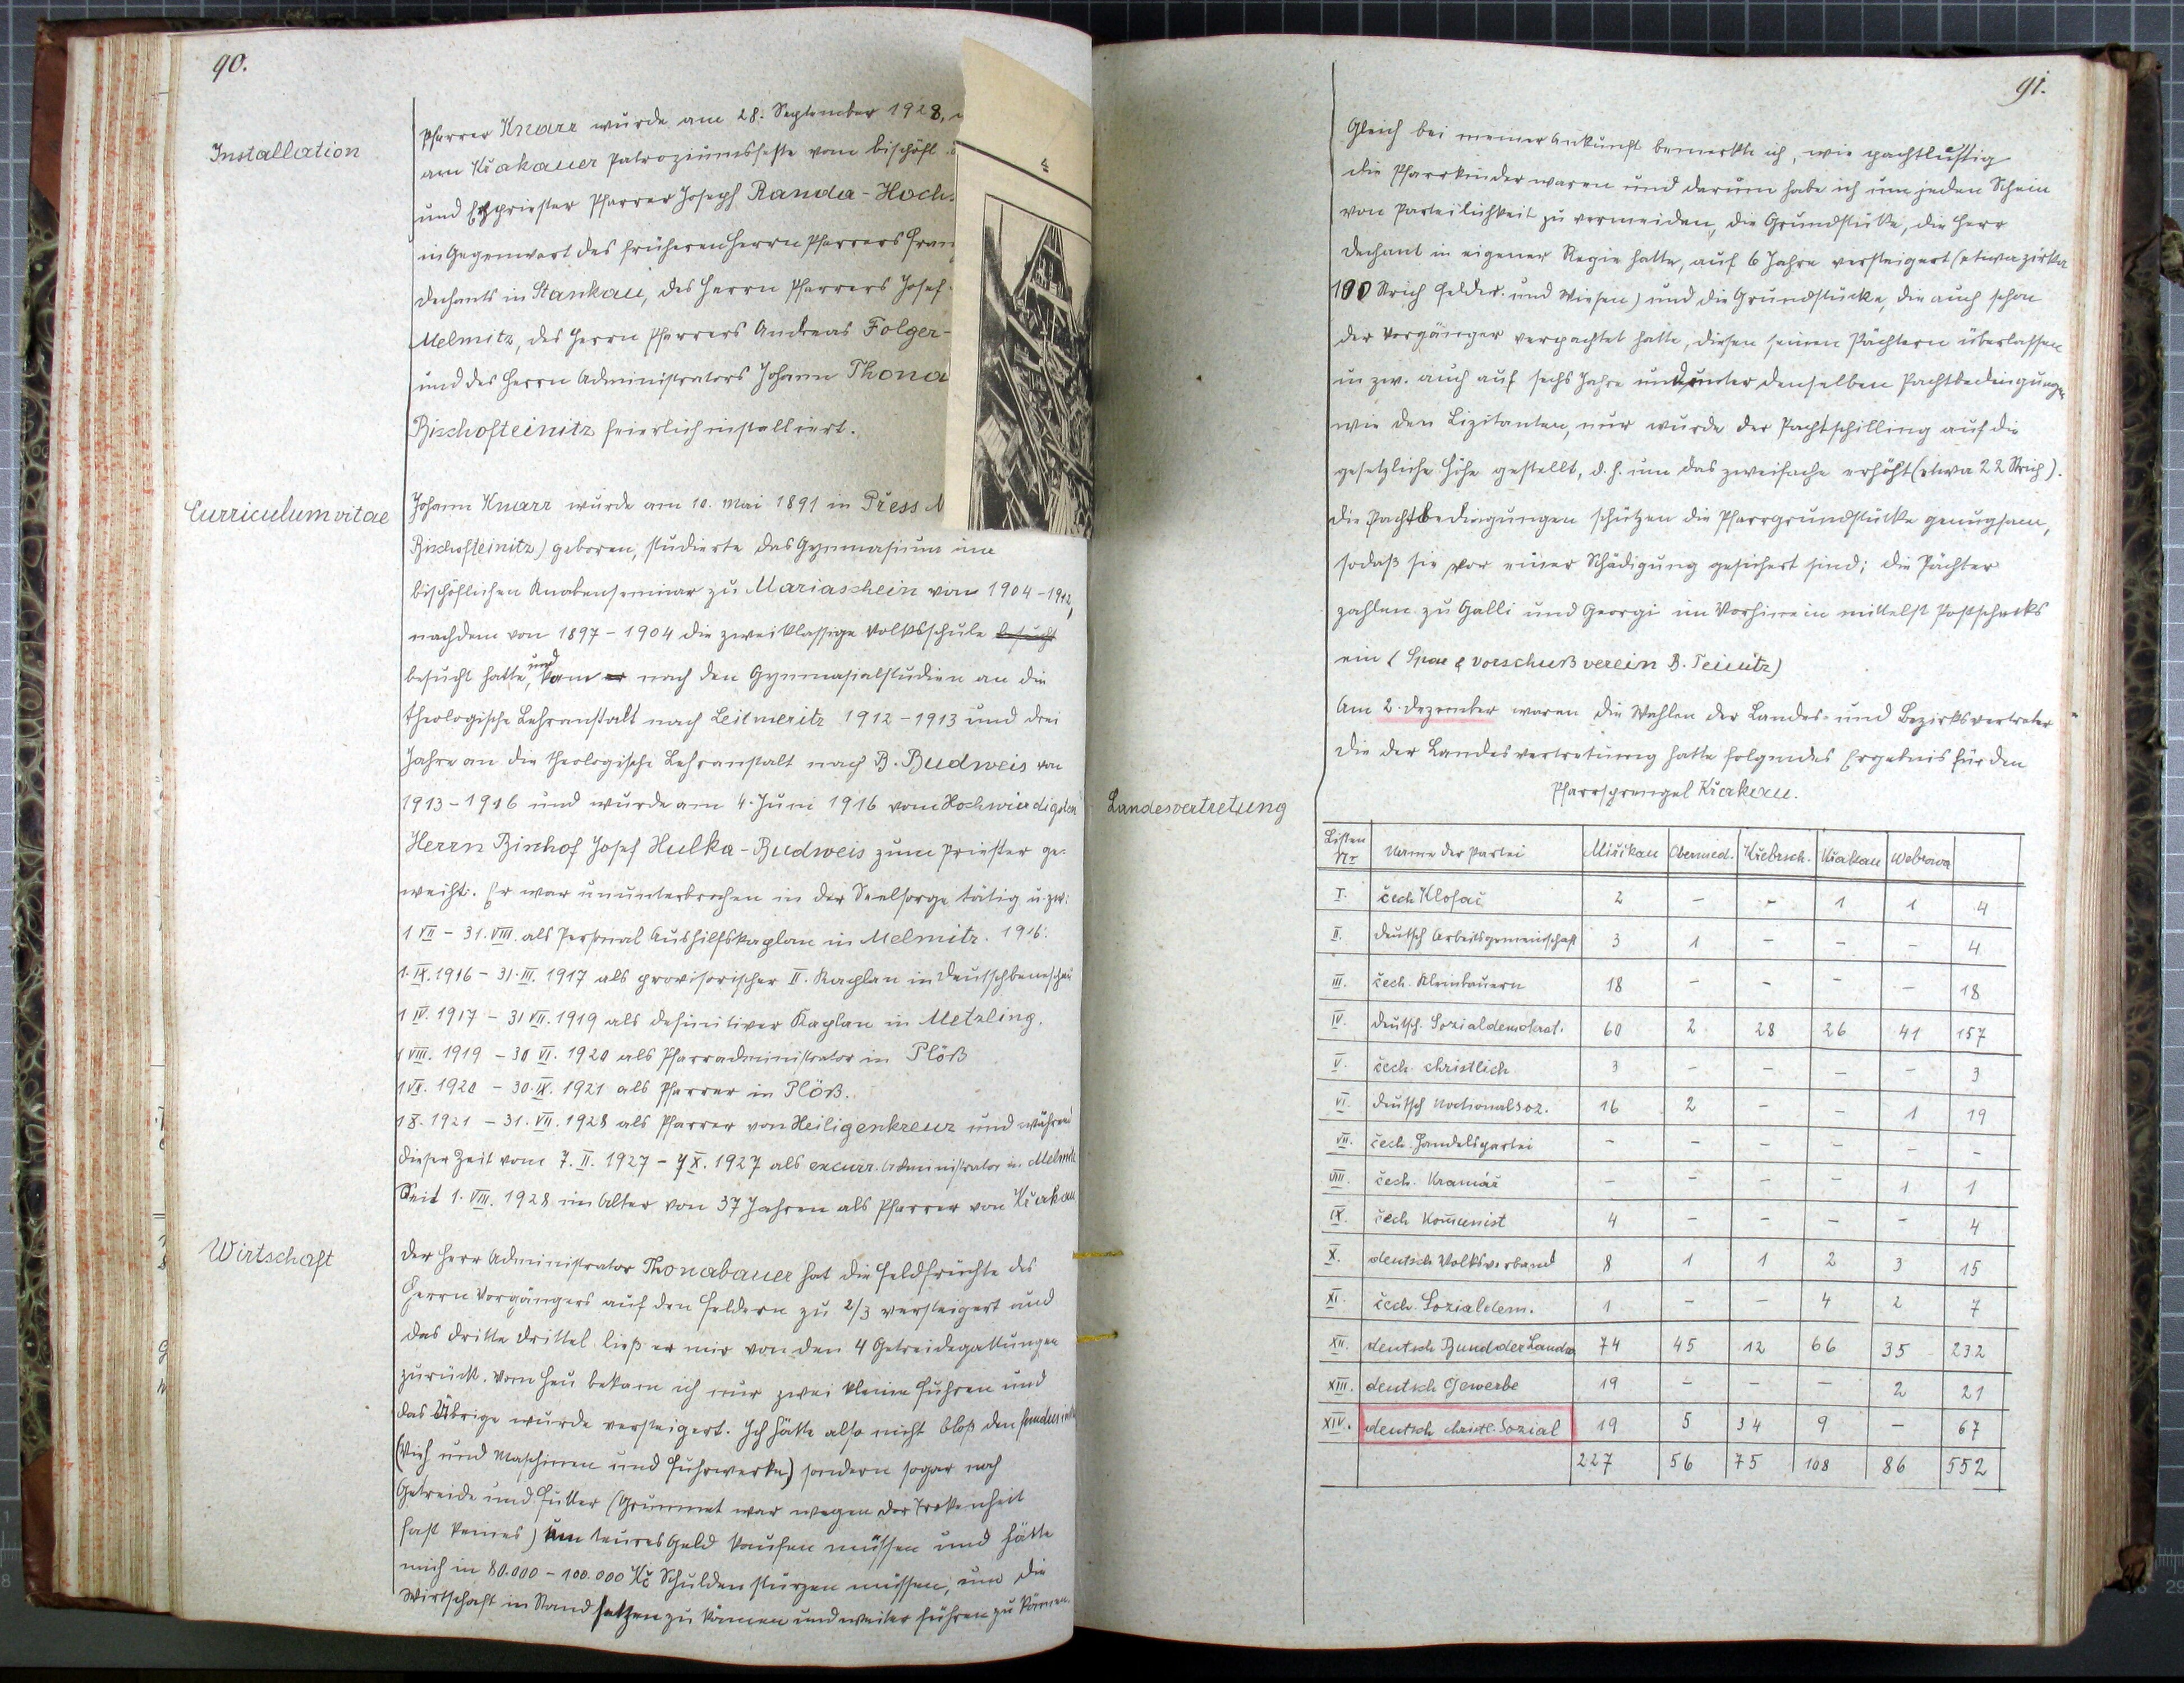 90.
Installation
Pfarrer Knarr wurde am 28. September 1928,
am Křakauer Patroziniumsfeste vom bischöfl.
und Erzpriester Pfarrer Joseph Randa - Hoch
in Gegenwart des früheren Herrn Pfarrers Fran
Dechants in Stankau, des Herrn Pfarrers Josef
Melmitz, des Herrn Pfarrers Andreas Folger -
und des Herrn Administrators Johann Thona
Bischofteinitz feierlich installiert.
4
Curriculum vitae
Johann Knarr wurde am 10. Mai 1891 in Press
Bischofteinitz) geboren, studierte das Gymnasium im
bischöflichen Knabenseminar zu Mariaschein von 1904 - 1912,
nachdem von 1897 - 1904 die zweiklassige Volksschule besucht
besucht hatte, und kam er nach den Gymnasialstudien an die
theologische Lehranstalt nach Leitmeritz 1912 - 1913 und drei
Jahre an die theologische Lehranstalt nach B. Budweis von
1913 - 1916 und wurde am 4. Juni 1916 vom Hochwürdigsten
Herrn Bischof Josef Hulka - Budweis zum Priester ge-
weiht. Er war ununterbrochen in der Seelsorge tätig u. zw:
1 VII - 31. VIII. als Personal Aushilfskaplan in Melmitz. 1916.
1. IX. 1916 - 31. III. 1917 als provisorischer II. Kaplan in Deutschbeneschau
1 IV. 1917 - 31 VII. 1919 als definitiver Kaplan in Metzling.
1 VIII. 1919 - 30 VI. 1920 als Pfarradministrator in Plöß
1 VII. 1920 - 30. IX. 1921 als Pfarrer in Plöß.
1 X. 1921 - 31. VII. 1928 als Pfarrer von Heiligenkreuz und während
dieser Zeit vom 7. II. 1927 - 7 X. 1927 als excurr. Administrator in Melmitz
Seit 1. VIII. 1928 im Alter von 37 Jahren als Pfarrer von Křakau
Wirtschaft
Der Herr Administrator Thonabauer hat die Feldfrüchte des
Herrn Vorgängers auf den Feldern zu 2/3 versteigert und
das dritte Drittel ließ er mir von den 4 Getreidegattungen
zurück. Vom Heu bekam ich nur zwei kleine Fuhren und
das Übrige wurde versteigert. Ich hätte also nicht bloß den fundus
(Vieh und Maschinen und Fuhrwerke) sondern sogar noch
Getreide und Futter (Grummet war wegen der Trokenheit
fast keines) um teures Geld kaufen müssen und hätte
mich in 80.000 - 100.000 Kč Schulden stürzen müssen, um die
Wirtschaft in Stand setzen zu können und weiter führen zu können.
91.
Gleich bei meiner Ankunft bemerkte ich, wie pachtlustig
die Pfarrkinder waren und darum habe ich um jeden Schein
von Parteilichkeit zu vermeiden, die Grundstücke, die Herr
Dechant in eigener Regie hatte, auf 6 Jahre versteigert (etwa zirka
100 Strich Felder und Wiesen) und die Grundstücke, die auch schon
der Vorgänger verpachtet hatte, diesen seinen Pächtern überlassen
u zw. auch auf sechs Jahre und unter denselben Pachtbedingungen
wie den Lizitanten, nur wurde der Pachtschilling auf die
gesetzliche Höhe gestellt, d. h. um das zweifache erhöht (etwa 22 Strich).
Die Pachtbedingungen schützen die Pfarrgrundstücke genugsam,
sodaß sie vor einer Schädigung gesichert sind; die Pächter
zahlen zu Galli und Georgi im Vorhinein mittelst Postschecks
ein (Spar & Vorschuß verein B. Teinitz)
Am 2. Dezember waren die Wahlen der Landes- und Bezirksvertreter
Die der Landesvertretung hatte folgendes Ergebnis für den
Pfarrsprengel Křakau.
Landesvertretung
Listen Nr Name der Partei Miřikau Obermed. Křebesch. Křakau Webrowa
I. čech Klofač 2 - - 1 1 4
II. deutsch Arbeitsgemeinschaft 3 1 - - - 4
III. čech. Kleinbauern 18 - - - - 18
IV. deutsch. Sozialdemokrat. 60 2 28 26 41 157
V. čech. christlich 3 - - - - 3
VI. deutsch Nationalsoz. 16 2 - - 1 19
VII. čech. Handelspartei - - - - - -
VIII. čech. Kramář - - - - 1 1
IX. čech Komunist 4 - - - - 4
X. deutsch Volksverband 8 1 1 2 3 15
XI. čech. Sozialdem. 1 - - 4 2 7
XII. deutsch Bund der Landw 74 45 12 66 35 232
XIII. deutsch Gewerbe 19 - - - 2 21
XIV. deutsch christl. Sozial 19 5 34 9 - 67
227 56 75 108 86 552